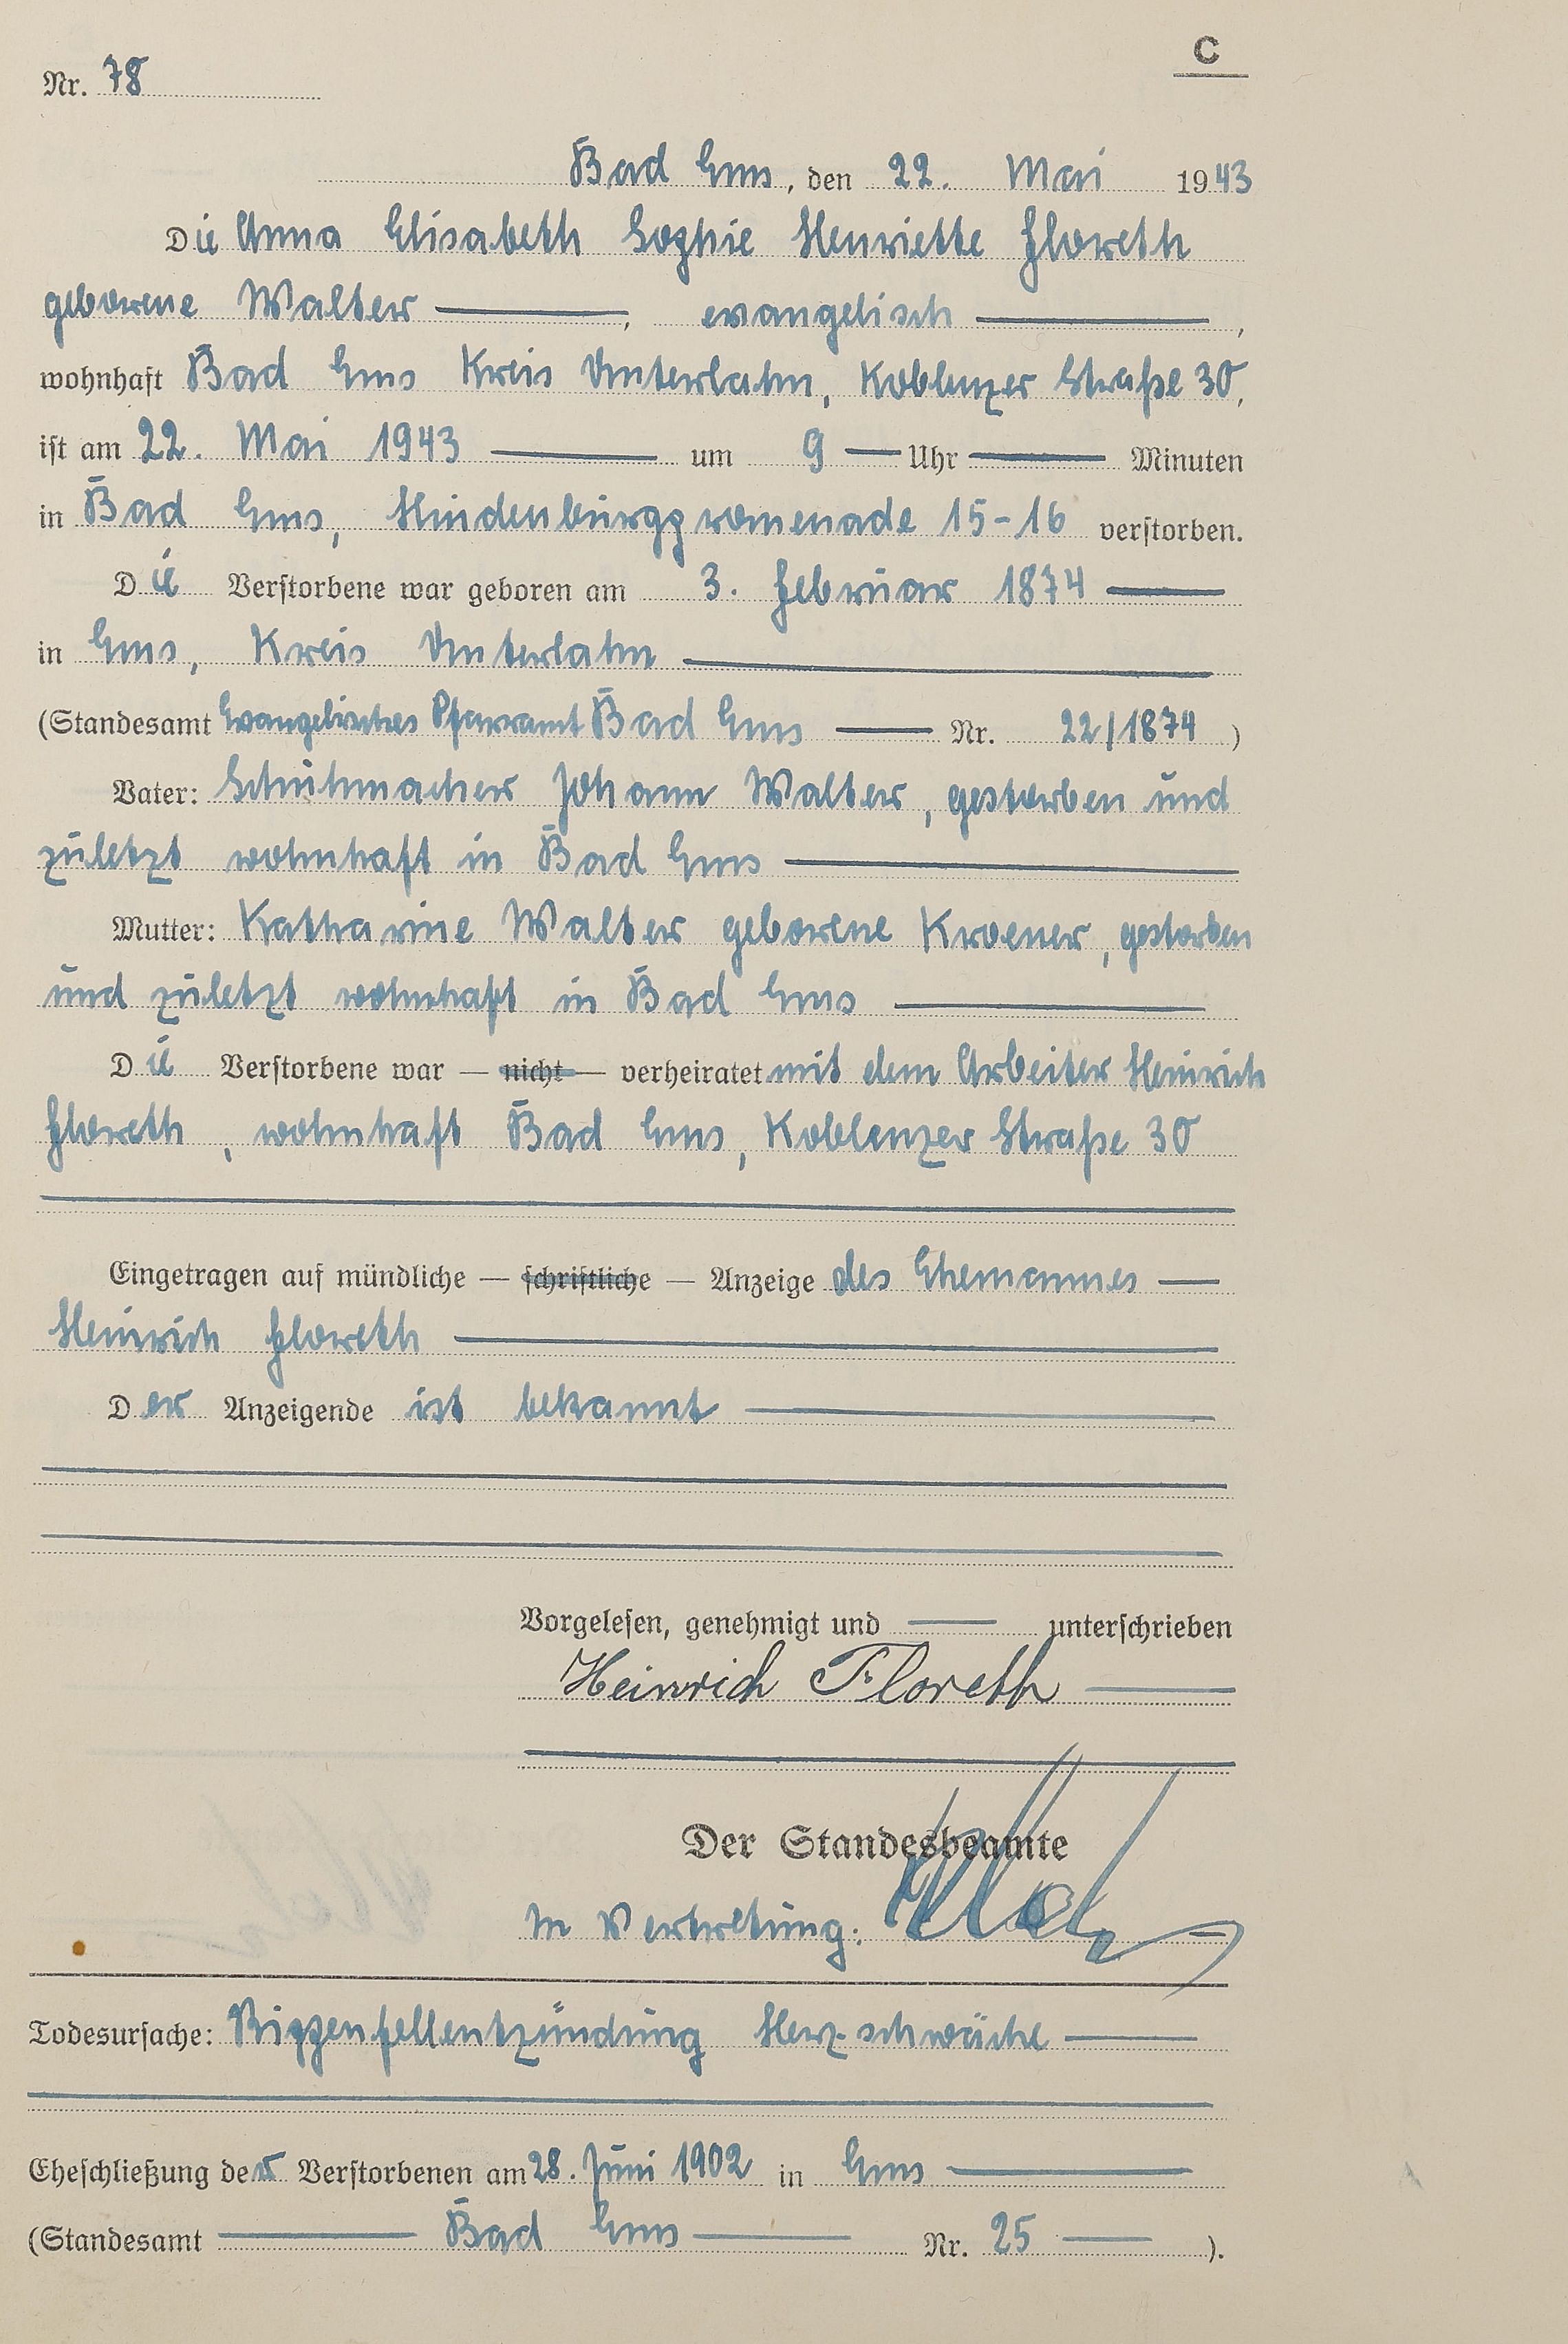 C
Nr. 78
Bad Ems, den 22. Mai 1943
Die Anna Elisabeth Sophie Henriette Floreth
geborene Walter ———, evangelisch ———,
wohnhaft Bad Ems Kreis Unterlahn, Koblenzer Straße 30,
ist am 22. Mai 1943 ——— um 9 — Uhr ——— Minuten
in Bad Ems, Hindenburgpromenade 15-16 verstorben.
Die Verstorbene war geboren am 3. Februar 1874 ———
in Ems, Kreis Unterlahn ———
(Standesamt Evangelisches Pfarramt Bad Ems ——— Nr. 22/1874)
Vater: Schuhmacher Johann Walter, gestorben und
zuletzt wohnhaft in Bad Ems ———
Mutter: Katharine Walter geborene Kroener, gestorben
und zuletzt wohnhaft in Bad Ems ———
Die Verstorbene war — nicht — verheiratet mit dem Arbeiter Heinrich
Floreth, wohnhaft Bad Ems, Koblenzer Straße 30
Eingetragen auf mündliche — schriftliche — Anzeige des Ehemannes —
Heinrich Floreth ———
Der Anzeigende ist bekannt ———
Vorgelesen, genehmigt und ——— unterschrieben
Heinrich Floreth ———
Der Standesbeamte
In Vertretung:
Todesursache: Rippenfellentzündung Herzschwäche ———
Eheschließung der Verstorbenen am 28. Juni 1902 in Ems ———
(Standesamt ——— Bad Ems ——— Nr. 25 ——— ).